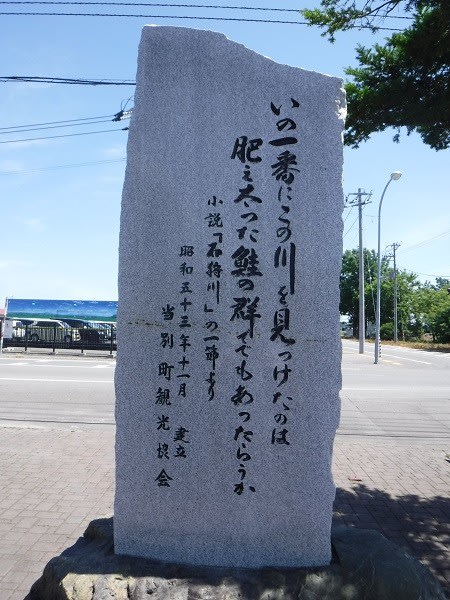 いの一番にこの川を見つけたのは
肥え太った鮭の群ででもあったらうか
小説「石狩川」の一部より
昭和五十三年十一月 建立
当別町観光協会